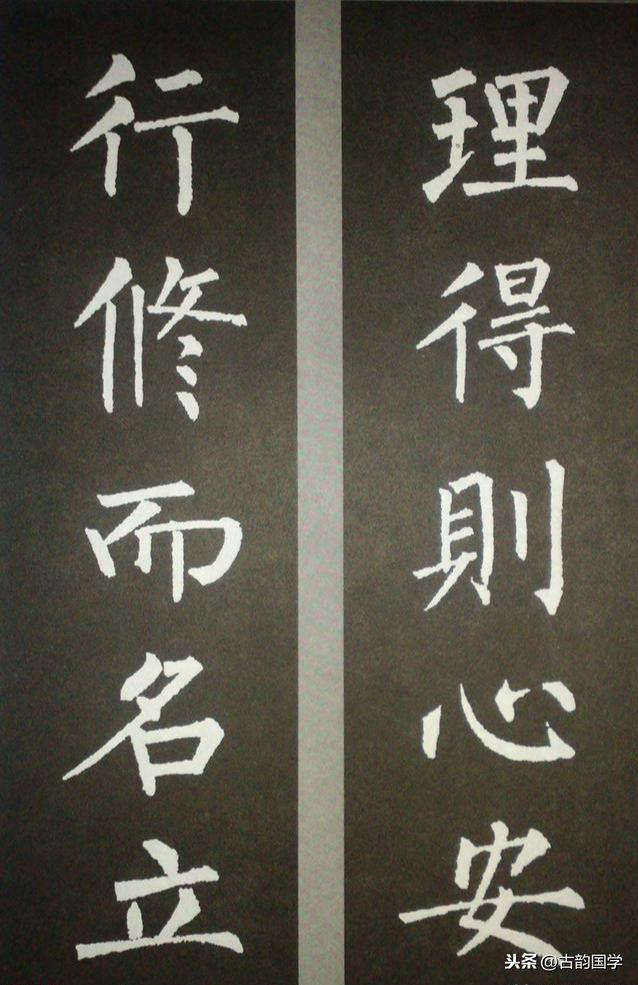 理得則心安
行修而名立
头条 @古韵国学